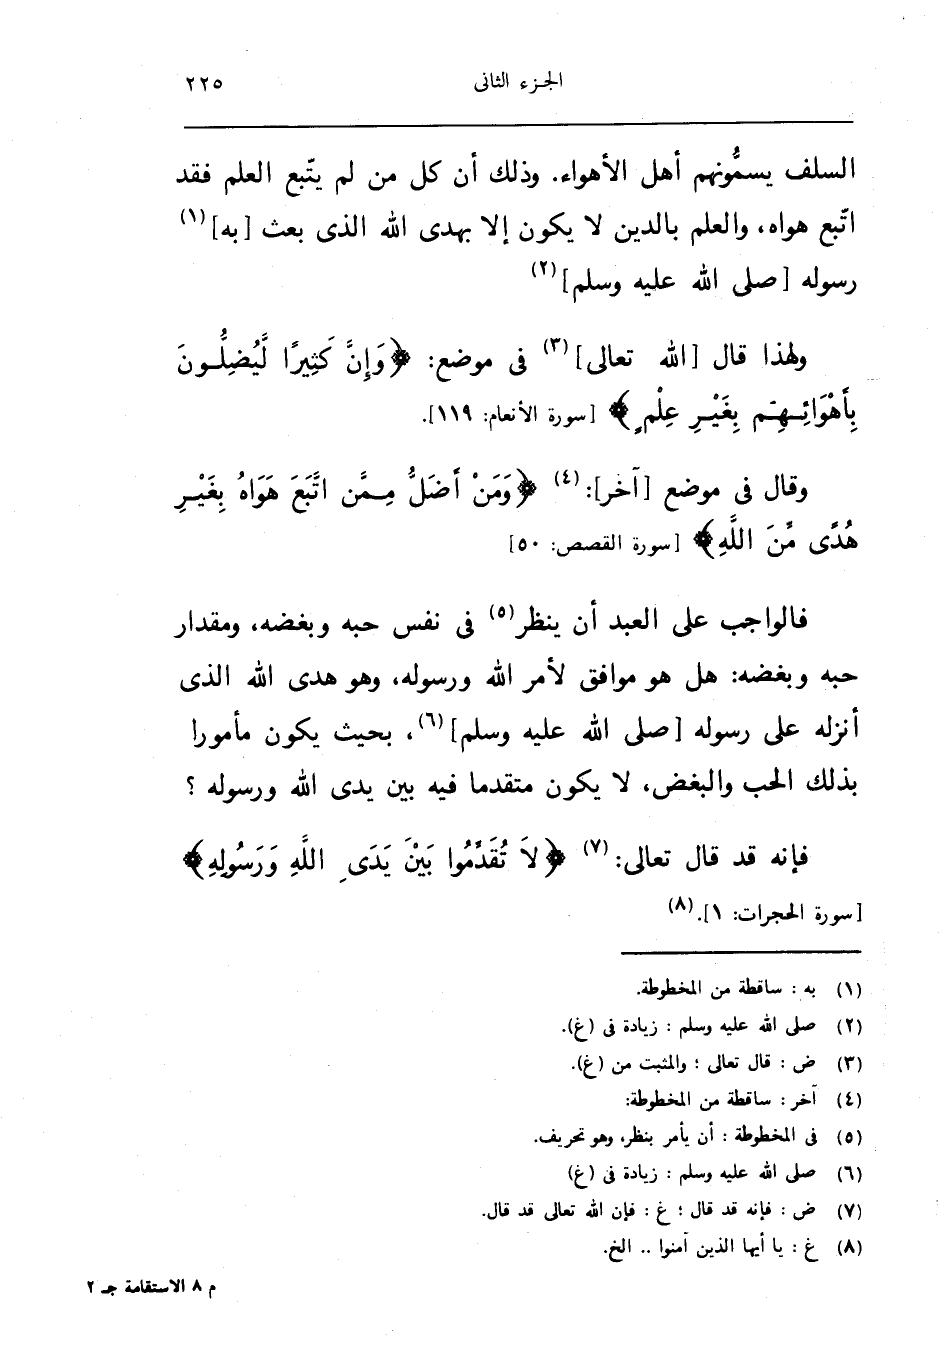 الجزء الثانى ٢٢٥
السلف يسمُّونهم أهل الأهواء. وذلك أن كل من لم يتّبع العلم فقد
اتّبع هواه، والعلم بالدين لا يكون إلا بهدى الله الذى بعث [به](١)
رسوله [صلى الله عليه وسلم](٢)
ولهذا قال [الله تعالى](٣) فى موضع: ﴿وَإِنَّ كَثِيرًا لَّيُضِلُّونَ
بِأَهْوَائِهِم بِغَيْرِ عِلْمٍ﴾ [سورة الأنعام: ١١٩].
وقال فى موضع [آخر]:(٤) ﴿وَمَنْ أَضَلُّ مِمَّن اتَّبَعَ هَوَاهُ بِغَيْرِ
هُدًى مِّنَ اللَّهِ﴾ [سورة القصص: ٥٠]
فالواجب على العبد أن ينظر(٥) فى نفس حبه وبغضه، ومقدار
حبه وبغضه: هل هو موافق لأمر الله ورسوله، وهو هدى الله الذى
أنزله على رسوله [صلى الله عليه وسلم](٦)، بحيث يكون مأمورا
بذلك الحب والبغض، لا يكون متقدما فيه بين يدى الله ورسوله ؟
فإنه قد قال تعالى:(٧) ﴿لاَ تُقَدِّمُوا بَيْنَ يَدَىِ اللَّهِ وَرَسُولِهِ﴾
[سورة الحجرات: ١].(٨)
(١) به : ساقطة من المخطوطة.
(٢) صلى الله عليه وسلم : زيادة فى (غ).
(٣) ض : قال تعالى ؛ والمثبت من (غ).
(٤) آخر : ساقطة من المخطوطة:
(٥) فى المخطوطة : أن يأمر بنظر، وهو تحريف.
(٦) صلى الله عليه وسلم : زيادة فى (غ)
(٧) ض : فإنه قد قال ؛ غ : فإن الله تعالى قد قال.
(٨) غ : يا أيها الذين آمنوا .. الخ.
م ٨ الاستقامة جـ ٢